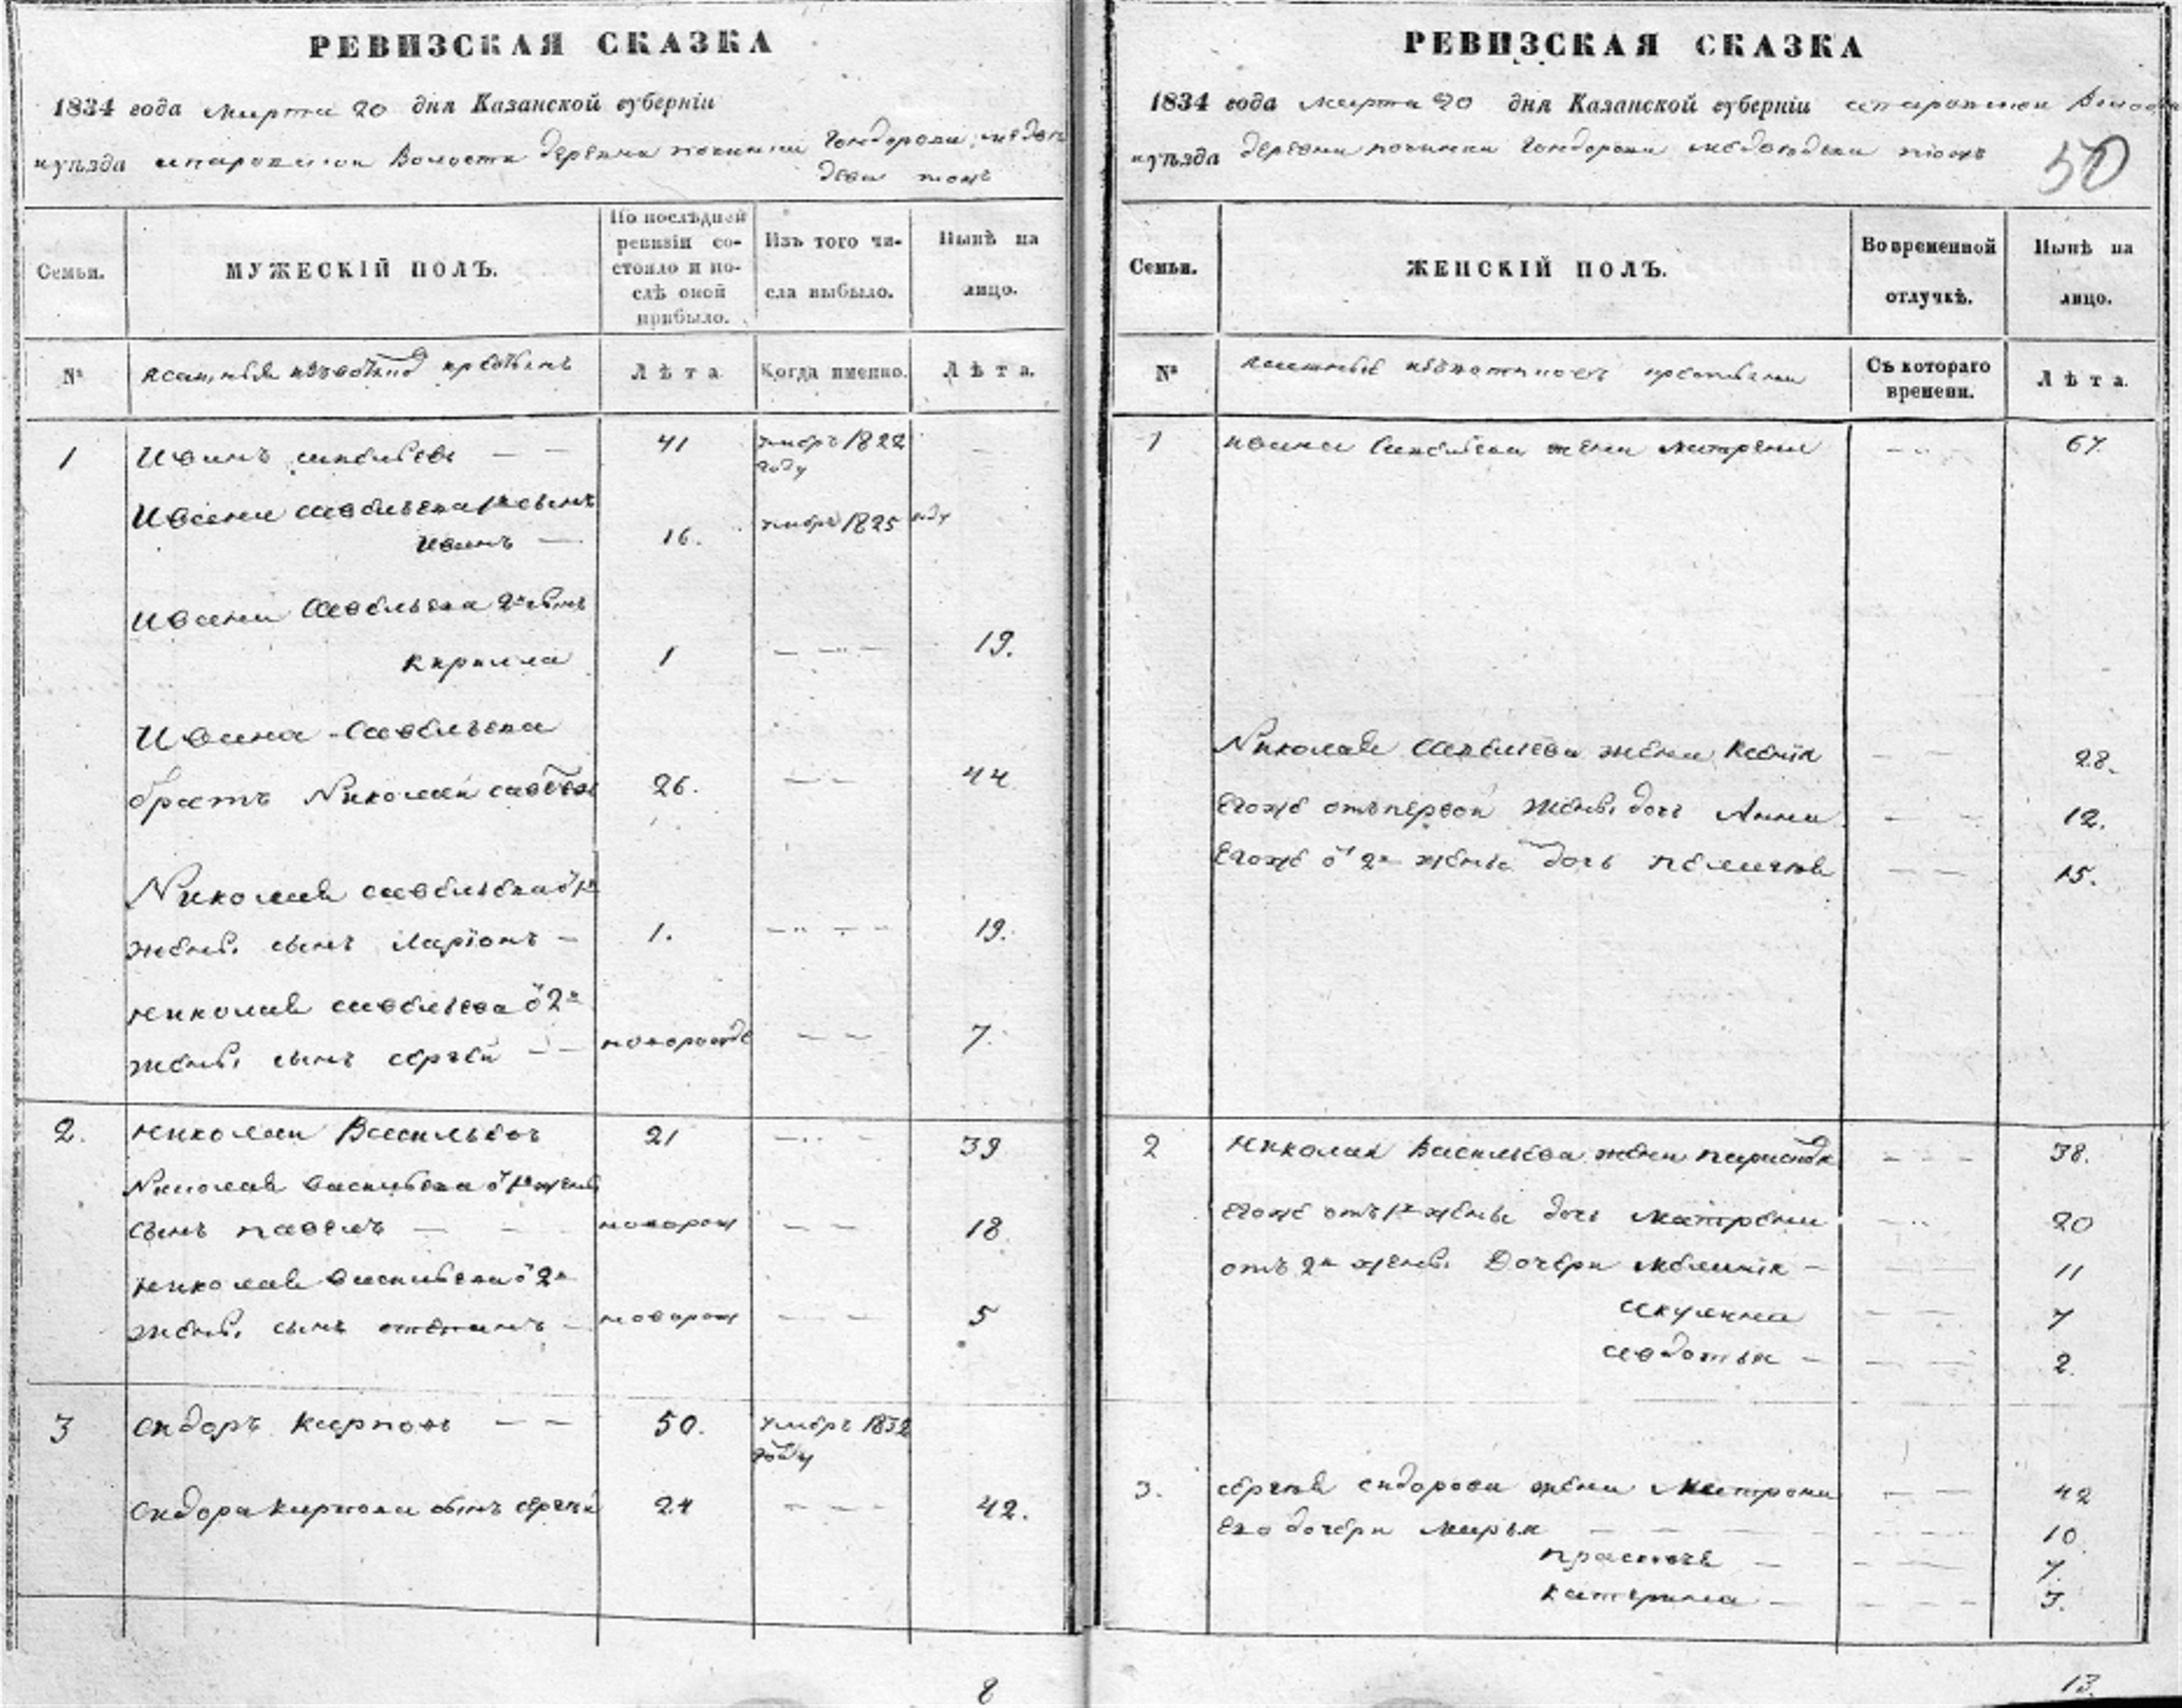 РЕВИЗСКАЯ СКАЗКА
1834 года марта 20 дня Казанской губерніи
и уѣзда Волости деревни починки
тожъ
Семьи.
МУЖЕСКІЙ ПОЛЪ.
По послѣдней ревизіи состояло и послѣ оной прибыло.
Изъ того числа выбыло.
Нынѣ на лицо.
№
Лѣта
Когда именно.
Лѣта.
1 Иванъ савельевъ — — 41 умеръ 1822 году —
Ивана савельева 1й сынъ
Иванъ — 16. умеръ 1825 году
Ивана Савельева 2й сынъ
Кирилла 1 — — — 19.
Ивана Савельева
братъ Николай 26. — — 44
Николая савельева о 1й
жены сынъ Ларіонъ — 1. — — — 19.
Николая савельева о 2й
жены сынъ сергѣй — — новорожде — — 7.
2. Николай Васильевъ 21 — — 39
Николая васильева о 1й жены
сынъ павелъ — — новорож — — 18
Николая васильева о 2й
жены сынъ степанъ — новорож — — 5
3 Сидоръ Карповъ — — 50. умеръ 1832 году
Сидора карпова сынъ сергѣй 24 — — — 42.
8
РЕВИЗСКАЯ СКАЗКА
1834 года марта 20 дня Казанской губерніи
и уѣзда деревни починки тожъ
50
Семьи.
ЖЕНСКІЙ ПОЛЪ.
Во временной отлучкѣ.
Нынѣ на лицо.
№
Съ котораго времени.
Лѣта.
1 Ивана Савельева жена матрена — — 67
Николая Савельева жена Ксенія — — 28.
Егоже отъ первой жены дочь Анна — — 12.
Егоже о 2й жены дочь пелагѣя — — 15.
2 Николая Васильева жена — — — 38.
Егоже отъ 1й жены дочь матрена — — 20
отъ 2й жены дочери меланія — — — 11
акулина — — 7
авдотья — — — 2
3. сергѣя сидорова жена матрона — — 42
Его дочери марья — — — 10
— — — 7.
катерина — — — — 3.
13.